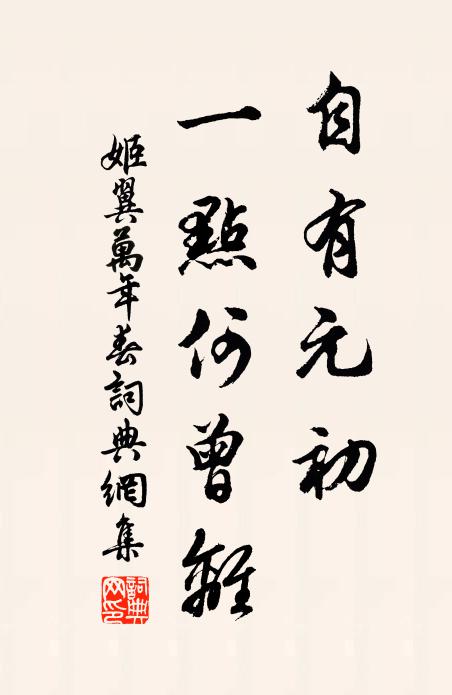 自有元初
一點何曾離
姬翼萬年春詞典網集
詞典網印